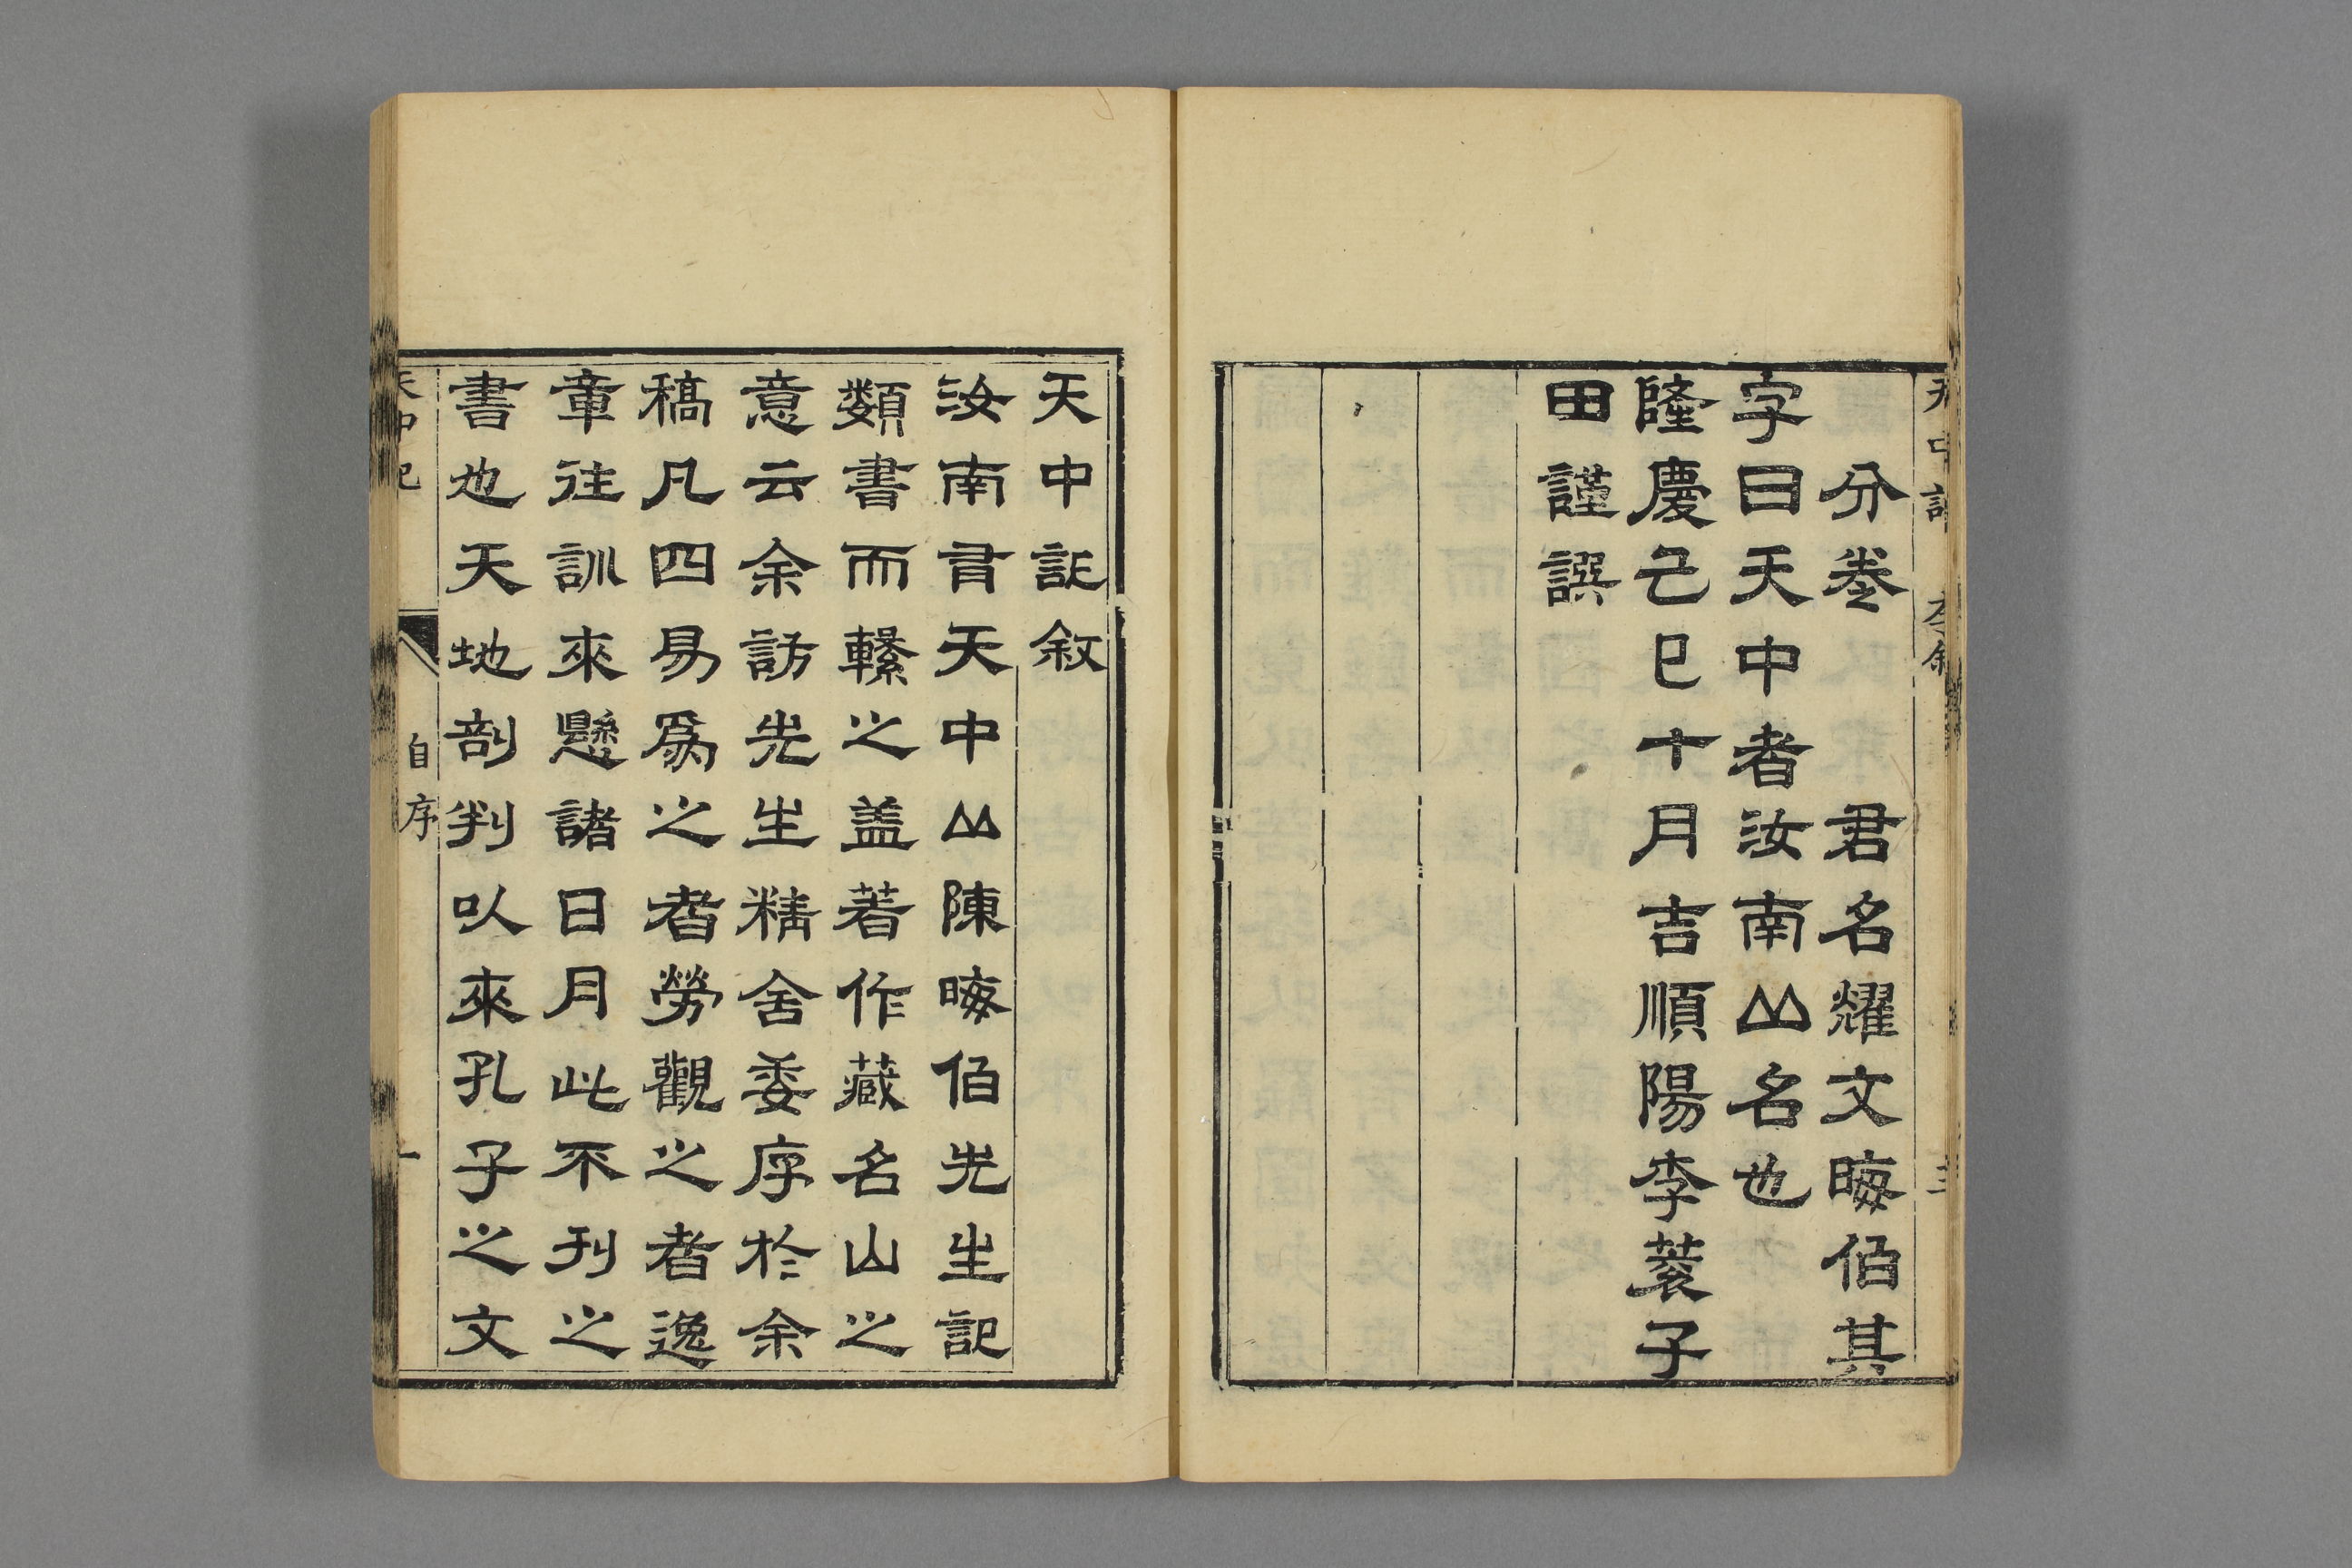 分卷　　君名耀文晦伯其
字曰天中者汝南山名也
隆慶己巳十月吉順陽李蓘子
田謹譔
天中記敘
汝南肎天中山陳晦伯先生記
纇書而繫之蓋著作藏名山之
意云余訪先生精舍委序於余
稿凡四易爲之者勞觀之者逸
章往訓來懸諸日月此不刊之
書也天地剖判以來孔子之文
自序